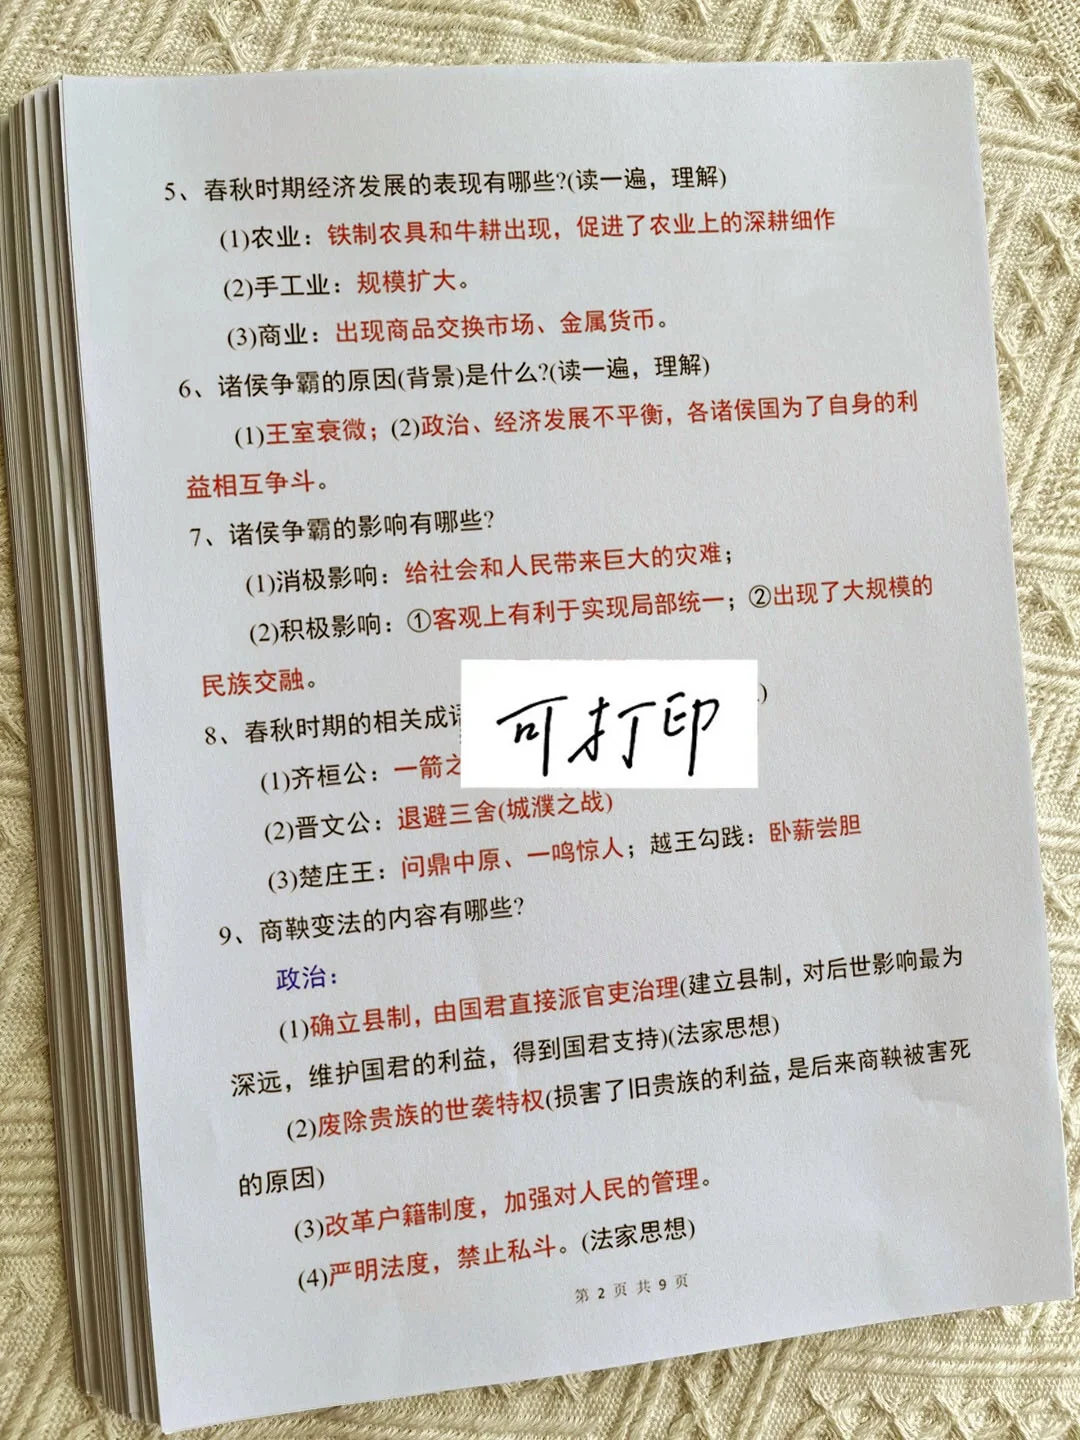 5、春秋时期经济发展的表现有哪些?(读一遍，理解)
(1)农业：铁制农具和牛耕出现，促进了农业上的深耕细作
(2)手工业：规模扩大。
(3)商业：出现商品交换市场、金属货币。
6、诸侯争霸的原因(背景)是什么?(读一遍，理解)
(1)王室衰微；(2)政治、经济发展不平衡，各诸侯国为了自身的利
益相互争斗。
7、诸侯争霸的影响有哪些?
(1)消极影响：给社会和人民带来巨大的灾难；
(2)积极影响：①客观上有利于实现局部统一；②出现了大规模的
民族交融。
8、春秋时期的相关成语
可打印
(1)齐桓公：一箭之
(2)晋文公：退避三舍(城濮之战)
(3)楚庄王：问鼎中原、一鸣惊人；越王勾践：卧薪尝胆
9、商鞅变法的内容有哪些?
政治：
(1)确立县制，由国君直接派官吏治理(建立县制，对后世影响最为
深远，维护国君的利益，得到国君支持)(法家思想)
(2)废除贵族的世袭特权(损害了旧贵族的利益，是后来商鞅被害死
的原因)
(3)改革户籍制度，加强对人民的管理。
(4)严明法度，禁止私斗。(法家思想)
第 2 页 共 9 页